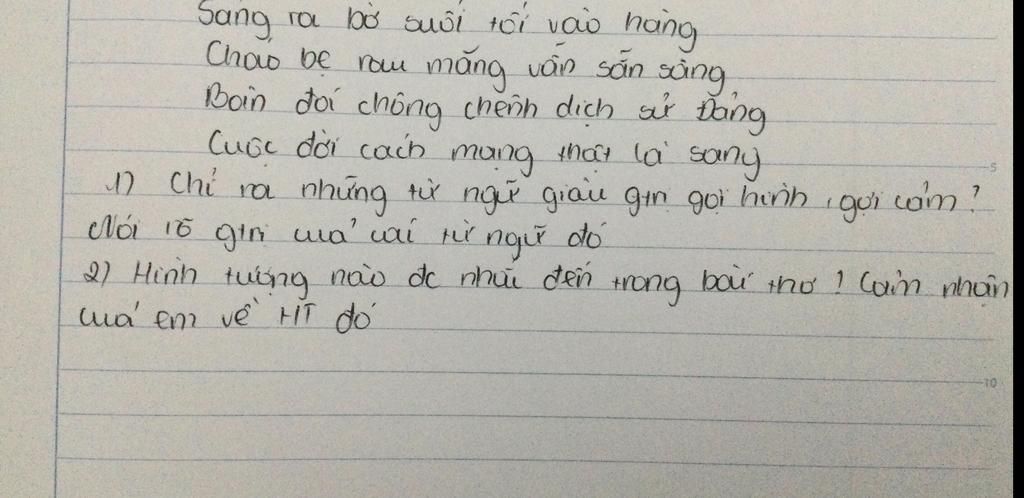 Sáng ra bờ suối tối vào hang
Cháo bẹ rau măng vẫn sẵn sàng
Bàn đá chông chênh dịch sử Đảng
Cuộc đời cách mạng thật là sang
1) Chỉ ra những từ ngữ giàu gtri gợi hình, gợi cảm?
Nói rõ gtri cuả cái từ ngữ đó
2) Hình tượng nào đc nhắc đến trong bài thơ? Cảm nhận
cuả em về HT đó
5
10